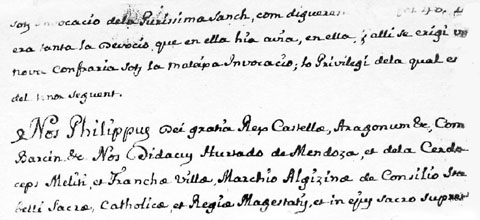 sots Invocacio dela Purissima Sanch, com digueren
era tanta la Devocio, que en ella hia avia, en ella, y alli se erigi u
nova Confraria sots la matexa Invocacio; lo Privilegi dela qual es
del tenor seguent.
Nos Philippus Dei gratia Rex Castellæ, Aragonum &c, Com
Barcin &c Nos Didacus Hurtado de Mendoza, et dela Cerda
ceps Meliti, et Franchæ Villæ, Marchio Algizinæ de Consilio Sta
belli Sacræ, Catholicæ et Regiæ Magestatis, et in ejus sacro supre